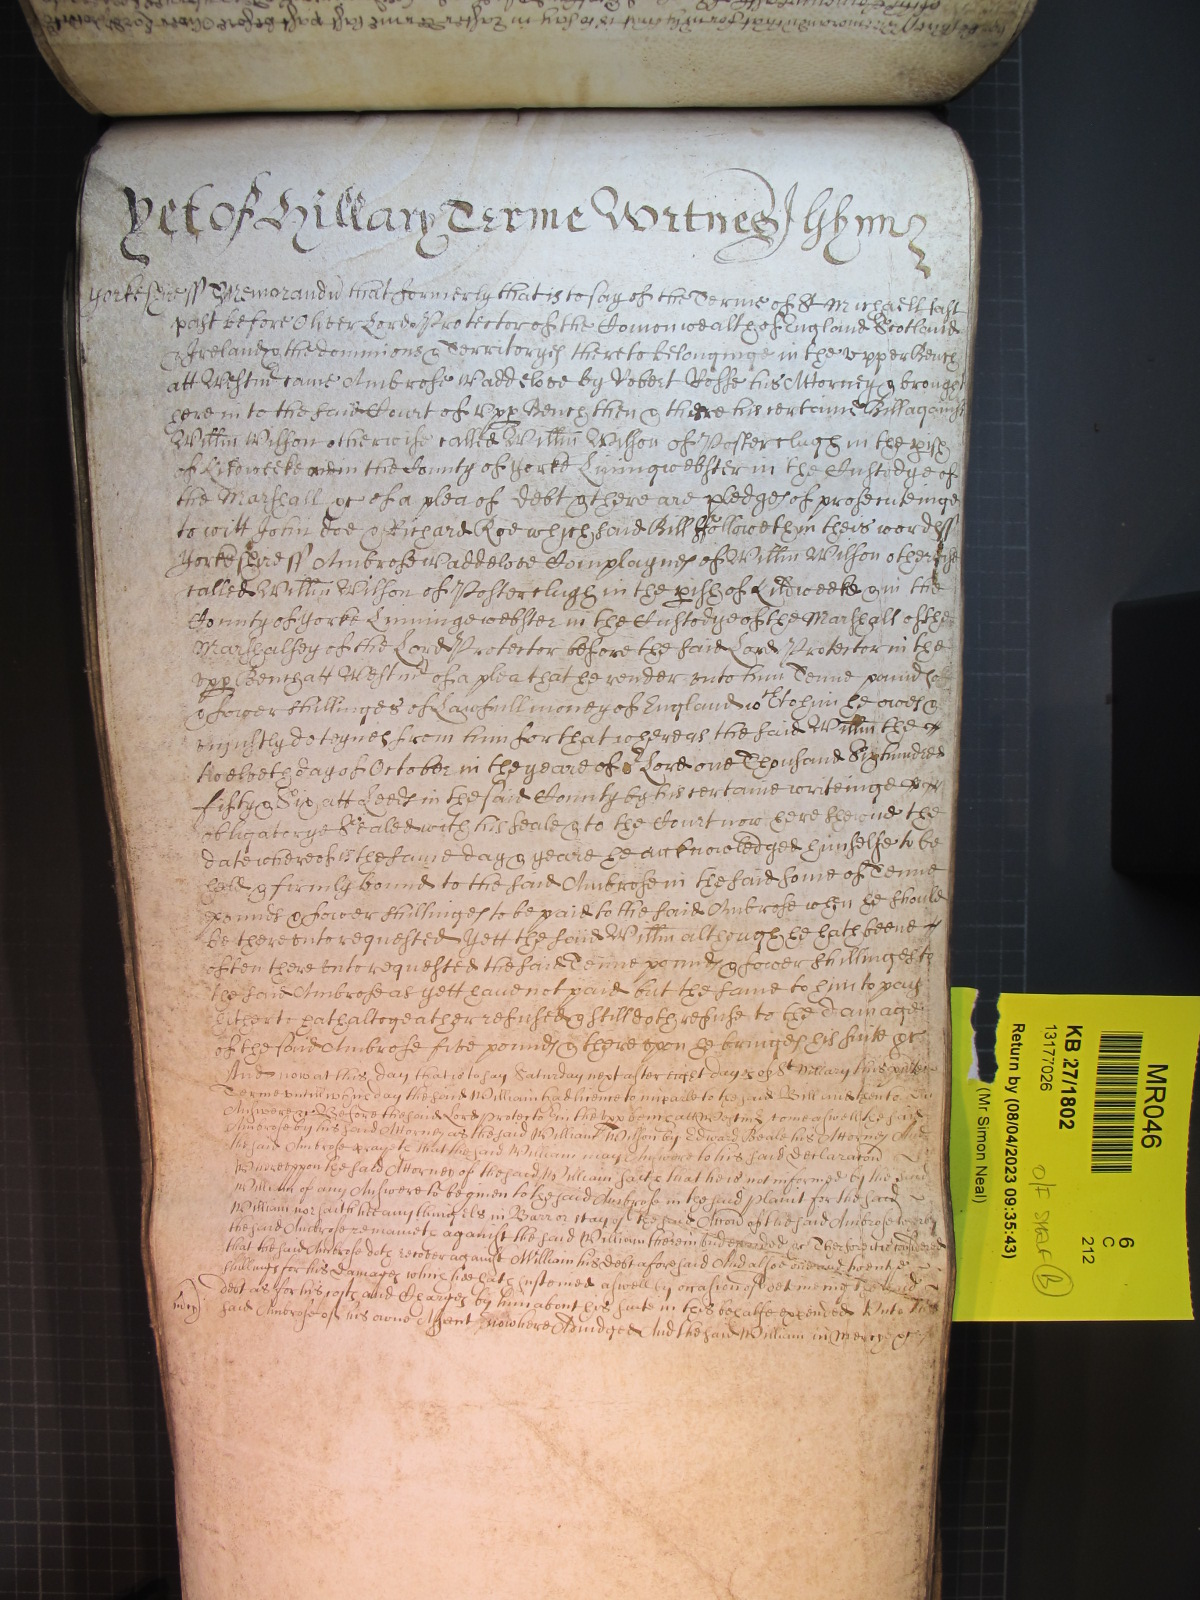 Yet of Hillary Terme Wittnes
Yorkesheress Memorandu that formerly that is to say of the Terme of St Michaell last
past before Oliver Lord Protector of the Comonwealth of England Scotland
& Ireland & the dominions & Territoryes thereto belonginge in the upper Bench
att Westmr came Ambrose Waddelove by Robert Rosse his Attorney & brought
here in to the said Court of Upp Bench then & there his certaine Bill against
Willm Wilson otherwise called Willm Wilson of in the pish
of Kildweeke in the County of Yorke Lininge webster in the Custodye of
the Marshall &c of a plea of debt & there are pledges of prosecuteinge
to witt John Doe & Richard Roe which said Bill followeth in theis wordess
Yorkesheress Ambrose Waddelove Complaynes of Willm Wilson otherwise
called Willm Wilson of in the pish of Kildweeke in the
County of Yorke Lininge webster in the Custodye of the Marshall of the
Marshalsey of the Lord Protector before the said Lord Protector in the
Upp Bench att Westmr of a plea that he render unto him Tenne pounds
& fower shillinges of Lawfull money of England wch to him he owes &
unjustly deteynes from him for that whereas the said Willm the
twelveth day of October in the yeare of or Lord one Thousand Six hundred
fifty & Six att Leeds in the said County by his certaine writeinge
obligatorye Sealed with his seale & to the Court now here shewed the
date whereof is the same day & yeare he acknowledged himselfe to be
held & firmly bound to the said Ambrose in the said some of Tenne
pounds & fower shillinges to be paid to the said Ambrose when he should
be thereunto requested Yett the said Willm although he hath beene
often thereunto requested the said Tenne pounds & fower shillinges to
the said Ambrose as yett have not paid but the same to him to pay
hitherto hath altogeather refused & still doth refuse to the damage
of the said Ambrose five pounds & thereupon he bringes his suite &c
And now at this day that is to say Saturday next after eight dayes of St Hillary this
Terme untill wch day the said William had licence to imparle to the said Bill and then to
Answere &c Before the said Lord Protector in the upp bench att Westmr come aswell the said
Ambrose by his said Attorney as the said William Wilson by Edward Beale his Attorney And
the said Ambrose prayeth that the said William may Answere to his said declaracon
Whereuppon the said Attorney of the said William saith that he is not informed by the said
William of any Answere to be given to the said Ambrose in the said plaint for the said
William nor saith he any thing els in Barr or stay of the said Accon of the said Ambrose
the said Ambrose remaineth against the said William therein undefended &c Therefore it is considered
that the said Ambrose doth recover against William his debt aforesaid And alsoe one and twentie
shillings for his Damages which hee hath susteined aswell by occasion of deteineing the said
debt as for his costs and Charges by him about his suite in this behalfe expended Unto the
said Ambrose of his owne Assent nowe here Adiudged And the said William in Mercy &c
mercy
MR046
6
C
212
KB 27/1802
13177026
Return by (08/04/2023 09:35:43)
(Mr Simon Neal)
B